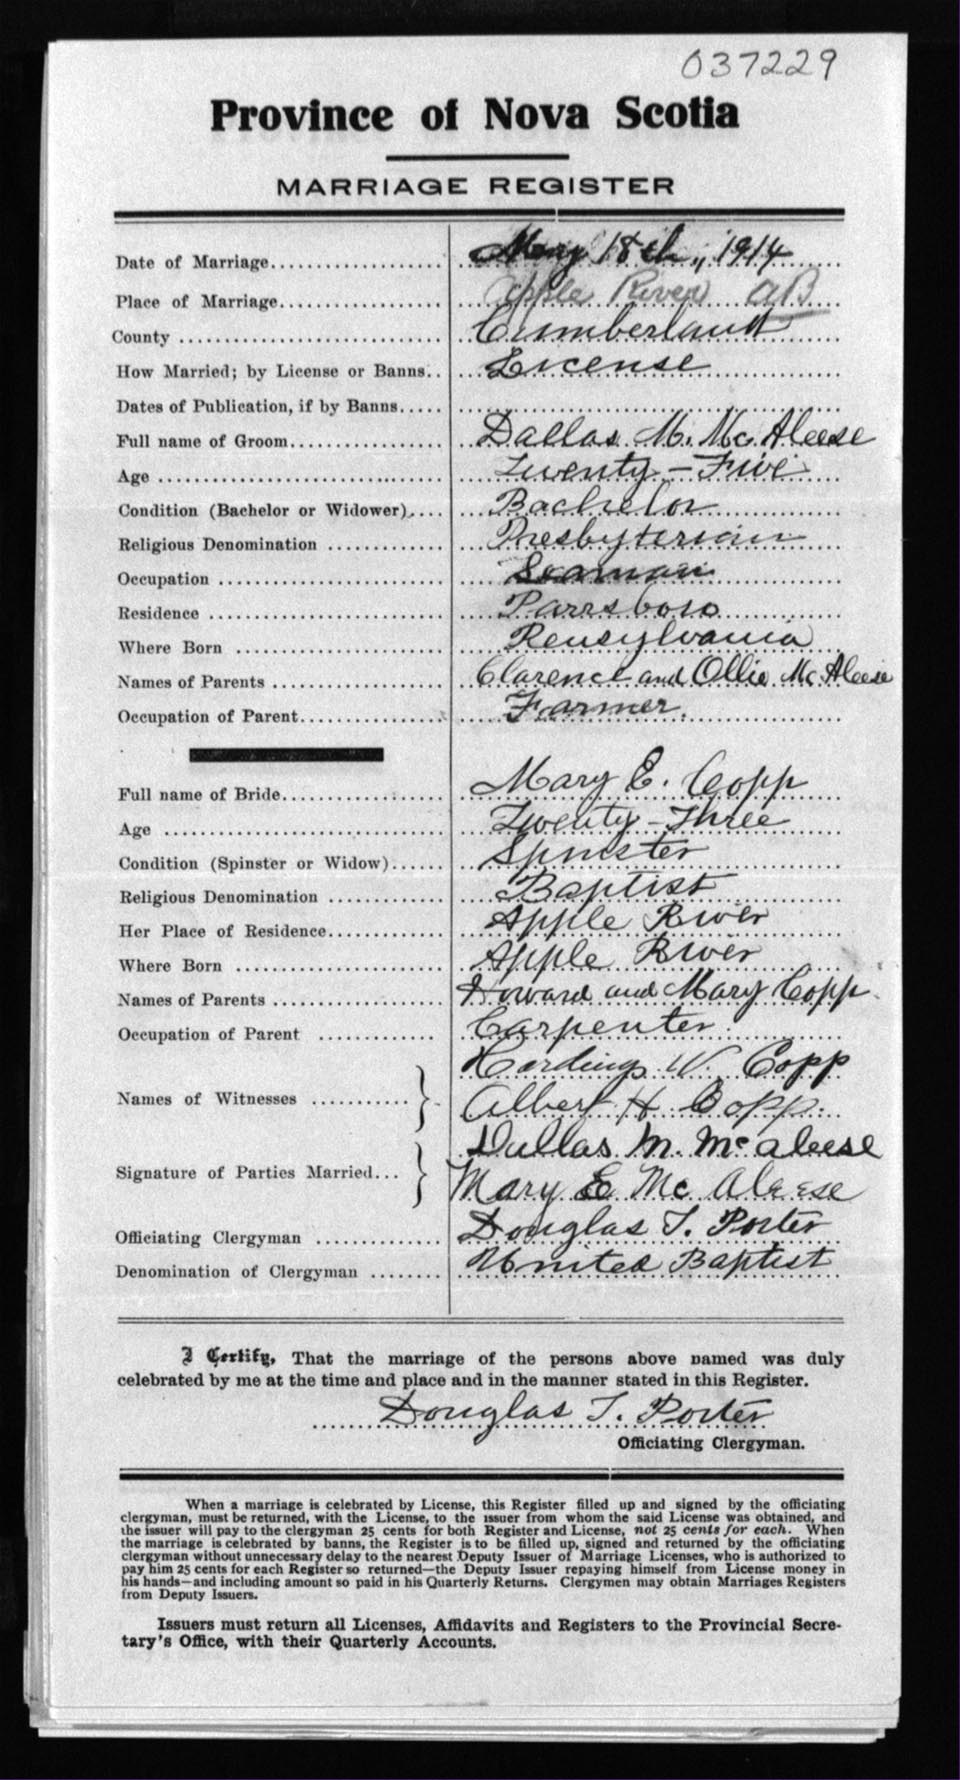 037229
Province of Nova Scotia
MARRIAGE REGISTER
Date of Marriage.................... May 18th, 1914
Place of Marriage.................. Apple River AB
County ............................ Cumberland
How Married; by License or Banns.. License
Dates of Publication, if by Banns.....
Full name of Groom................. Dallas M. McAleese
Age ............................... Twenty-Five
Condition (Bachelor or Widower).... Bachelor
Religious Denomination ............ Presbyterian
Occupation ........................ Seaman
Residence ......................... Parrsboro
Where Born ........................ Pensylvania
Names of Parents .................. Clarence and Ollie McAleese
Occupation of Parent............... Farmer.
Full name of Bride................. Mary E. Copp
Age ............................... Twenty-Three
Condition (Spinster or Widow)...... Spinster
Religious Denomination ............ Baptist
Her Place of Residence............. Apple River
Where Born ........................ Apple River
Names of Parents .................. Howard and Mary Copp.
Occupation of Parent .............. Carpenter.
Harding W. Copp
Names of Witnesses ...........
Albert H. Copp.
Dallas M. McAleese
Signature of Parties Married...
Mary E McAleese
Officiating Clergyman .............. Douglas T. Porter
Denomination of Clergyman ........ United Baptist
I Certify, That the marriage of the persons above named was duly
celebrated by me at the time and place and in the manner stated in this Register.
Douglas T. Porter
Officiating Clergyman.
When a marriage is celebrated by License, this Register filled up and signed by the officiating
clergyman, must be returned, with the License, to the issuer from whom the said License was obtained, and
the issuer will pay to the clergyman 25 cents for both Register and License, not 25 cents for each. When
the marriage is celebrated by banns, the Register is to be filled up, signed and returned by the officiating
clergyman without unnecessary delay to the nearest Deputy Issuer of Marriage Licenses, who is authorized to
pay him 25 cents for each Register so returned—the Deputy Issuer repaying himself from License money in
his hands—and including amount so paid in his Quarterly Returns. Clergymen may obtain Marriages Registers
from Deputy Issuers.
Issuers must return all Licenses, Affidavits and Registers to the Provincial Secre-
tary's Office, with their Quarterly Accounts.